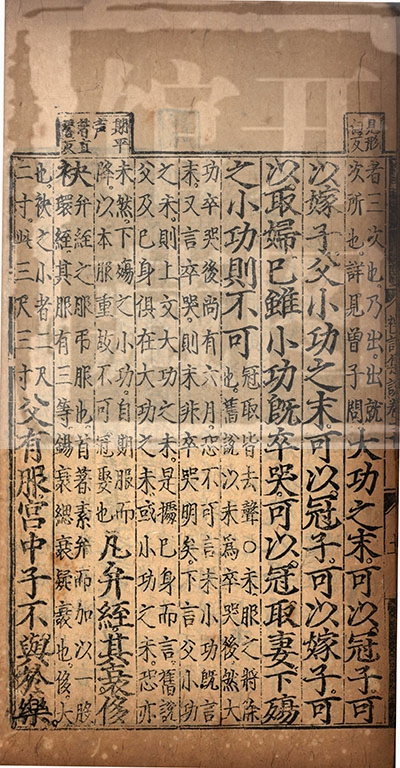 見形甸反
者三次也乃出出就
次所也詳見曾子問
大功之末可以冠子可
以嫁子父小功之末可以冠子可以嫁子可
以取婦己雖小功既卒哭可以冠取妻下殤
之小功則不可
冠取皆去聲○末服之將除
也舊說以末為卒哭後然大
功卒哭後尚有六月恐不可言末小功既言
末又言卒哭則末非卒哭明矣下言父小功
之末則上文大功之末是據己身而言舊說
父及己身俱在大功之末或小功之末恐亦
期平声
著直畧反
未然下殤之小功自期服而
降以本服重故不可冠娶也
凡弁絰其衰侈
袂
弁絰之服弔服也首著素弁而加以一股
環絰其服有三等錫衰緦衰疑衰也侈大
也袂之小者二尺
二寸此三尺三寸
父有服宮中子不與於樂